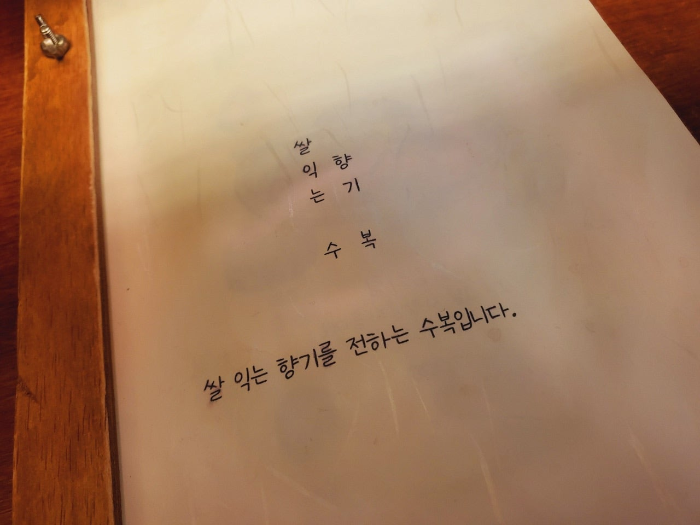 쌀
익 향
는 기
수 복
쌀 익는 향기를 전하는 수복입니다.